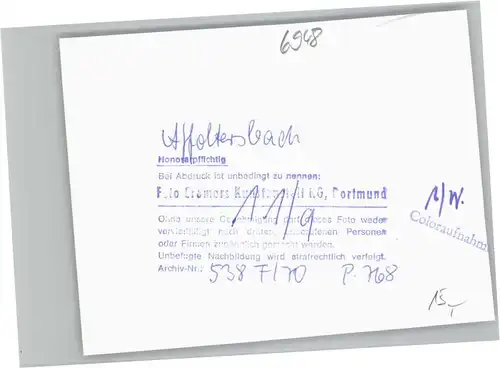 6948
Affoltersbach
Honorarpflichtig
Bei Abdruck ist unbedingt zu nennen:
Foto Cramers Kunstanstalt i.G, Dortmund
11/9
s/W.
Ohne unsere Genehmigung darf dieses Foto weder
vervielfältigt noch dritten Personen
oder Firmen zugänglich gemacht werden.
Unbefugte Nachbildung wird strafrechtlich verfolgt.
Coloraufnahm
Archiv-Nr.: 538 F/70 P. 768
15,-